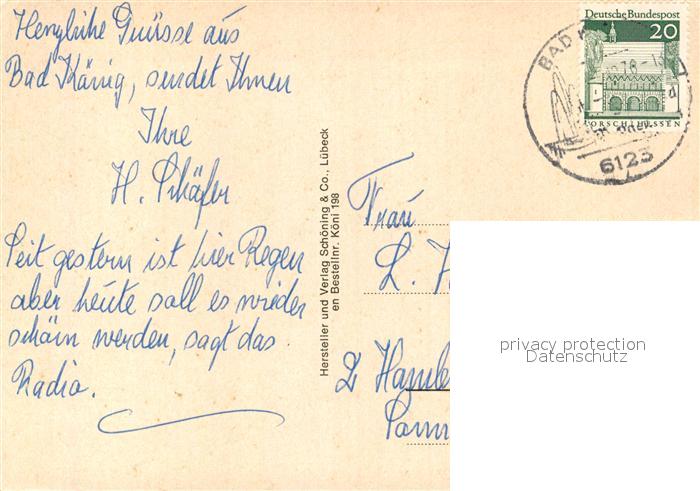 Herzliche Grüsse aus
Bad König, sendet Ihnen
Ihre
H. Schäfer
Seit gestern ist hier Regen
aber heute soll es wieder
schön werden, sagt das
Radio.
Hersteller und Verlag Schöning & Co., Lübeck
en Bestellnr. Köni 198
Deutsche Bundespost
20
LORSCH/HESSEN
BAD K
6123
Frau
L. H
2 Hamb
privacy protection
Datenschutz